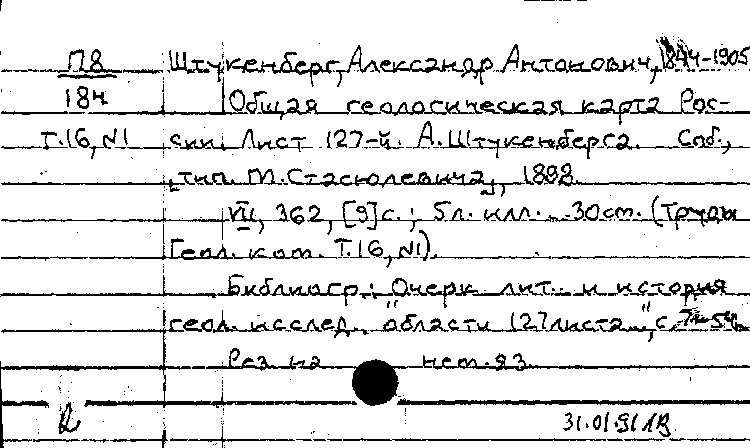 П8 Штукенберг, Александр Антонович, 1844-1905
184 Общая геологическая карта Рос-
Т.16, №1 сии. Лист 127-й. А. Штукенберга. Спб.,
"тип. М. Стасюлевича", 1898.
VII, 362, [9] с.; 5 л. илл. 30 cm. (Труды
Геол. ком. Т.16, №1).
Библиогр.: Очерк лит.. и история
геол. исслед. "области 127 листа...", с.
Рез. на нем. яз.
31.01.91